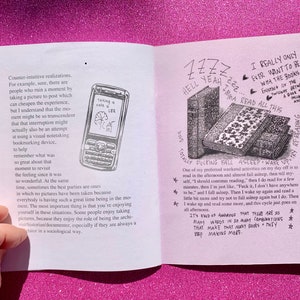 Counter-intuitive realizations.
For example, sure, there are
people who ruin a moment by
taking a picture to post which
can cheapen the experience,
but I understand that the mo-
ment might be so transcendent
that that interruption might
actually also be an attempt
at using a visual notetaking
bookmarking device,
to help
remember what was
so great about that
moment to revisit
the feeling since it was
so wonderful. At the same
time, sometimes the best parties are ones
in which no pictures have been taken because
everybody is having such a great time being in the mo-
ment. The most important thing is that you're enjoying
yourself in these situations. Some people enjoy taking
pictures, because they enjoy the role of being the archi-
documentarian, especially if they see always a
or in a sociological way.
ZZZZ
HELL YEAH I
READ ALL THE
I REALLY ONLY
EVER WANT TO BE
WITH THE BOOKS
FALL ASLEEP
One of my preferred weekend activities on my day off is to
read in the afternoon and almost fall asleep, then tell my-
self, "I should continue reading," then I do read for a few
minutes, then I'm just like, "Fuck it, I don't have anywhere
to be," and I fall asleep. Then I wake up again and read a
little bit more and try not to fall asleep again but I do. Then
I wake up and read some more, and this cycle just goes on
all afternoon.
IT'S KIND OF AWKWARD THAT THERE ARE SO
MANY WORDS IN SO MANY COMBINATIONS
THAT MAKE SO MANY BOOKS & THEY
KEEP MAKING MORE